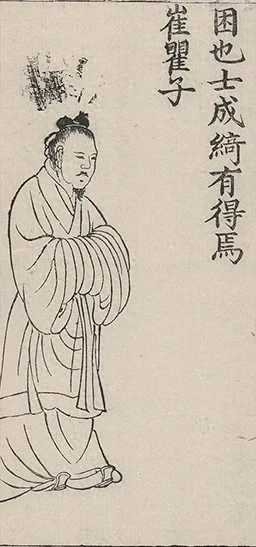 困也士成綺有得焉
崔瞿子